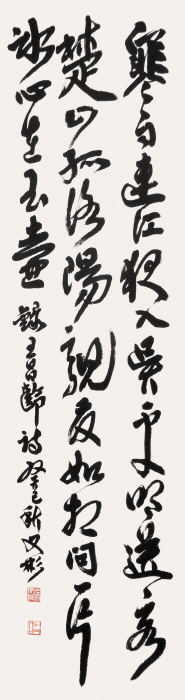 寒雨連江夜入吳平明送客
楚山孤洛陽親友如相問一片
冰心在玉壺 錄王昌齡詩癸巳秋文彬